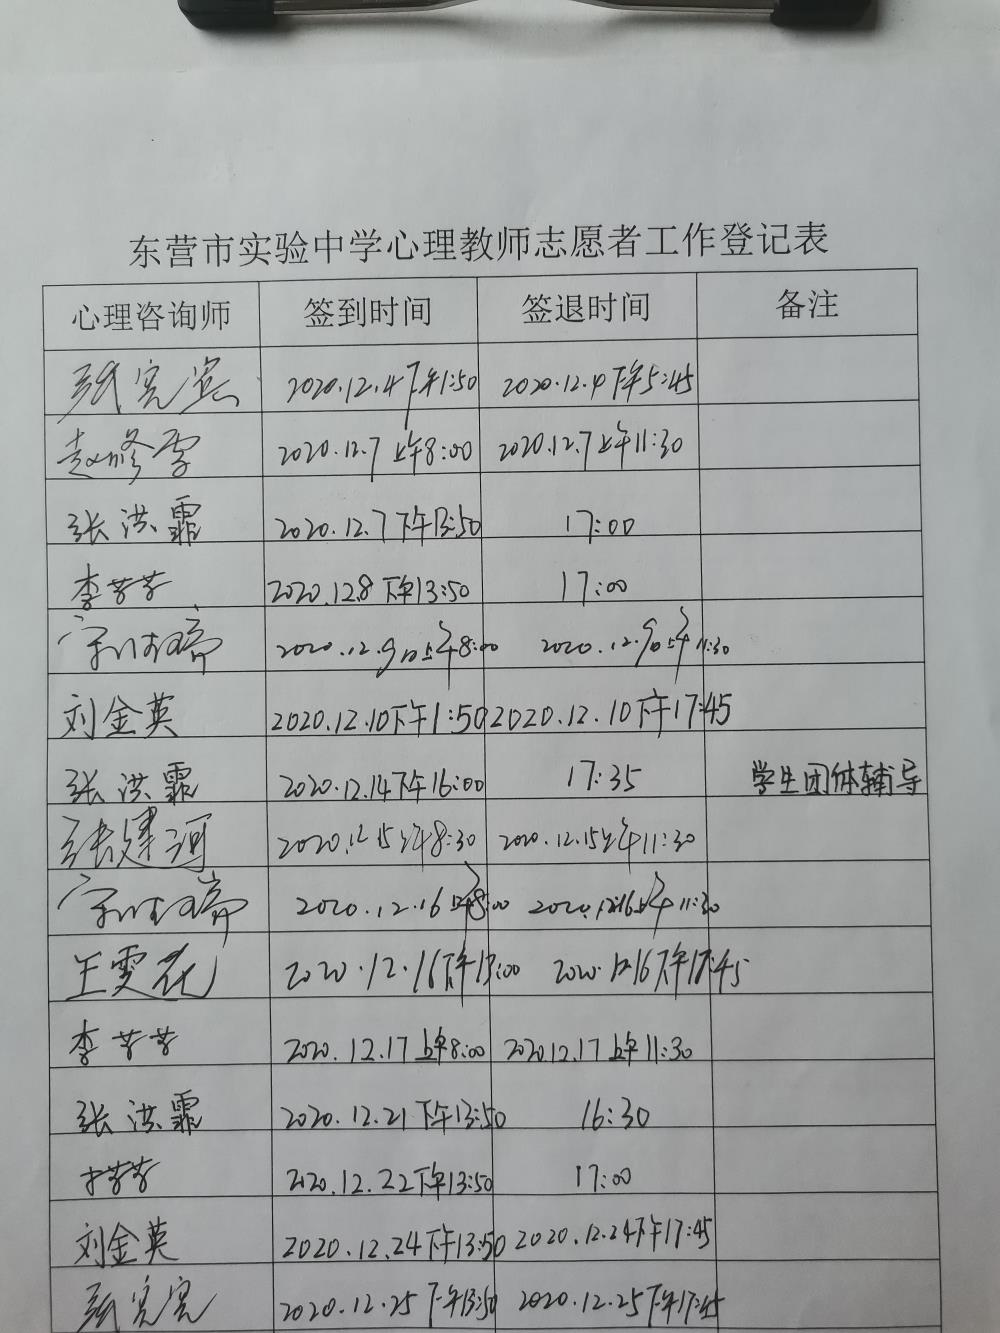 东营市实验中学心理教师志愿者工作登记表
心理咨询师 签到时间 签退时间 备注
2020.12.4下午1:50 2020.12.4下午5:45
赵修雪 2020.12.7上午8:00 2020.12.7上午11:30
张洪霏 2020.12.7下午13:50 17:00
李芳芳 2020.12.8下午13:50 17:00
2020.12.9日上午8:00 2020.12.9日上午11:30
刘金英 2020.12.10下午1:50 2020.12.10下午17:45
张洪霏 2020.12.14下午16:00 17:35 学生团体辅导
张建河 2020.12.15上午8:30 2020.12.15上午11:30
2020.12.16上午8:00 2020.12.16上午11:30
王雯花 2020.12.16下午13:00 2020.12.16下午17:45
李芳芳 2020.12.17上午8:00 2020.12.17上午11:30
张洪霏 2020.12.21下午13:50 16:30
2020.12.22下午13:50 17:00
刘金英 2020.12.24下午13:50 2020.12.24下午17:45
2020.12.25下午13:50 2020.12.25下午17:45